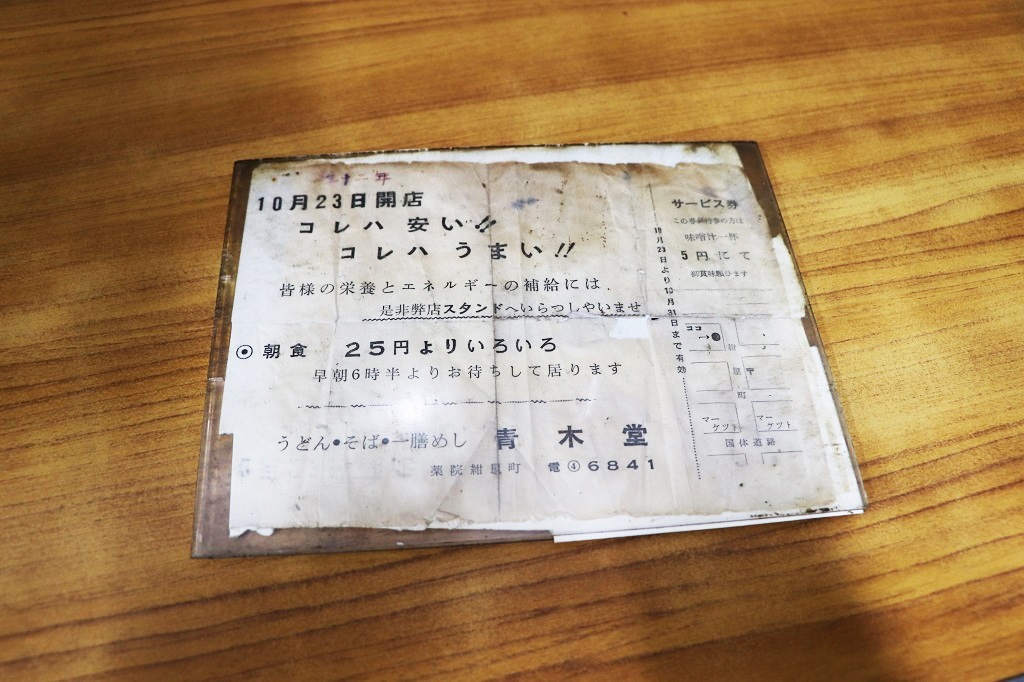 十二年
10月23日開店
コレハ 安い!!
コレハ うまい!!
皆様の栄養とエネルギーの補給には、
是非弊店スタンドへいらつしやいませ
◉ 朝食 25円よりいろいろ
早朝6時半よりお待ちして居ります
うどん•そば•一膳めし 青木堂
薬院紺屋町 電④6841
10月23日より10月31日まで有効
サービス券
この券御持参の方は
味噌汁一杯
5円にて
御賞味願ひます
ココ
→●
紺屋町
〒
マーケツト
マーケツト
国体道路